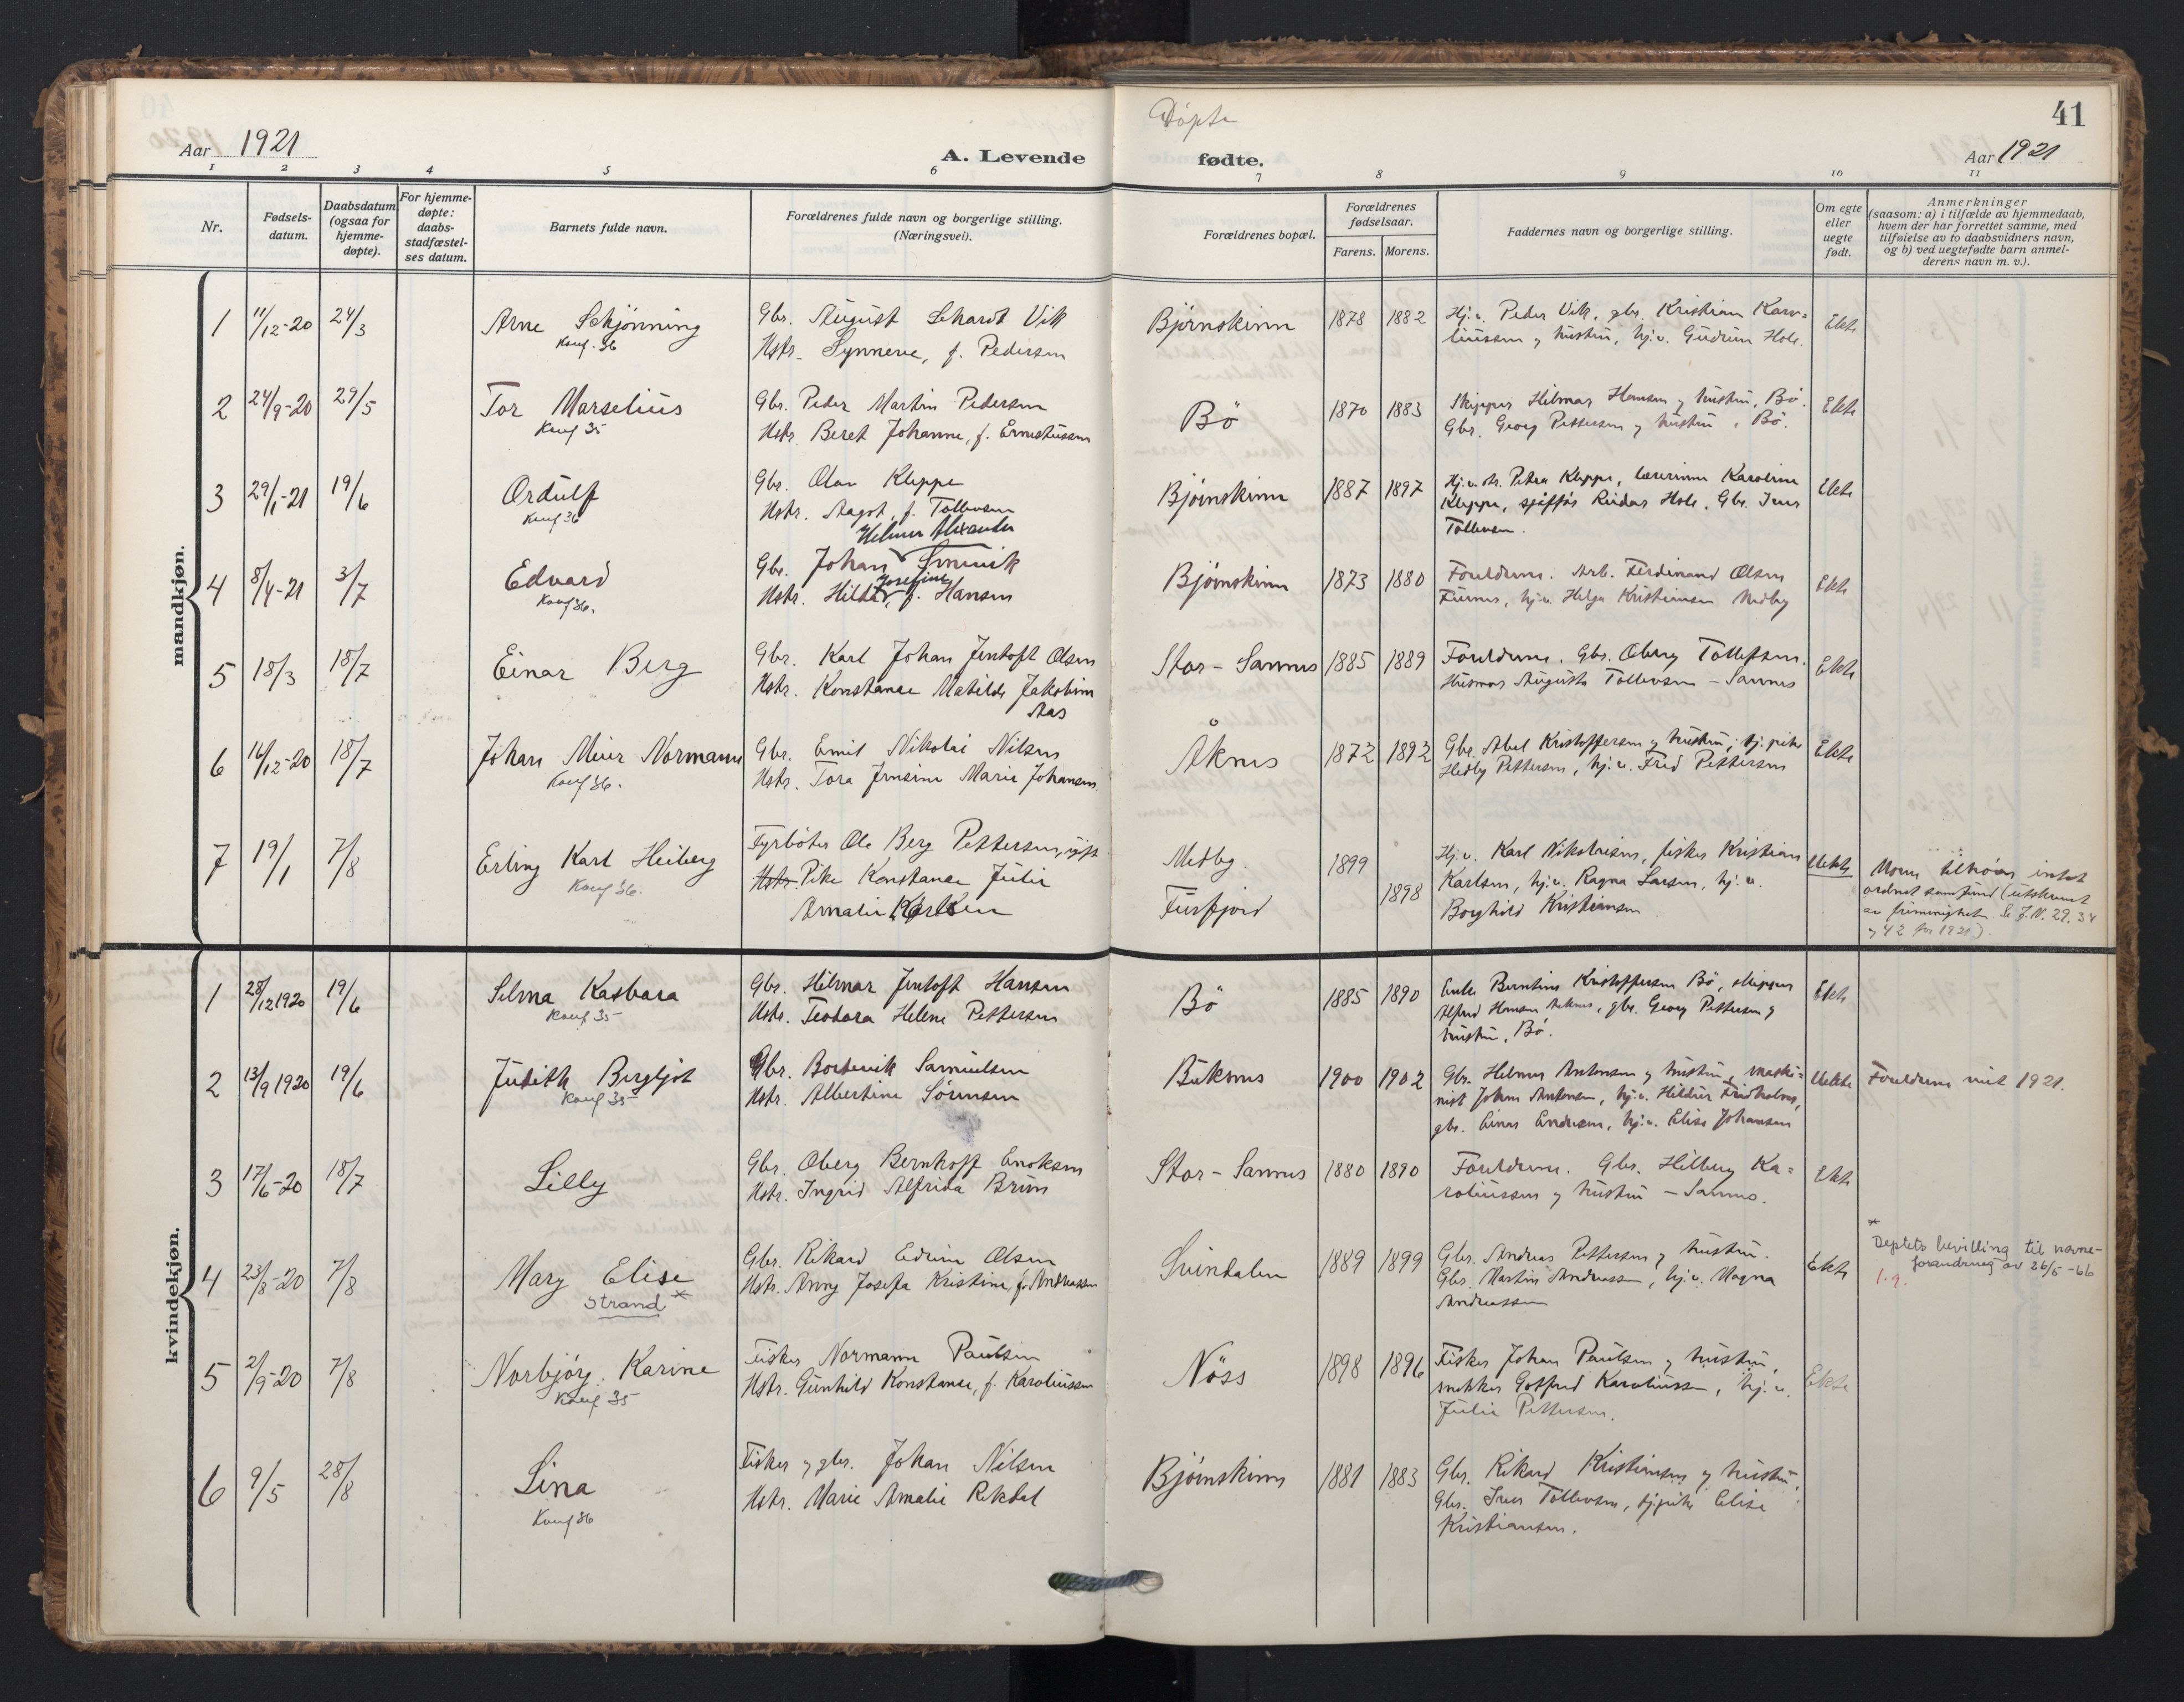 Døpte
41
Aar 1921
A. Levende
fødte.
Aar 1921
1 2 3 4 5 6 7 8 9 10 11
Nr.
Fødsels-
datum.
Daabsdatum
(ogsaa for
hjemme-
døpte).
For hjemme-
døpte:
daabs-
stadfæstel-
ses datum.
Barnets fulde navn.
Forældrenes fulde navn og borgerlige stilling.
(Næringsvei).
Forældrenes bopæl.
Forældrenes
fødselsaar.
Farens. Morens.
Faddernes navn og borgerlige stilling.
Om egte
eller
uegte
født.
Anmerkninger
(saasom: a) i tilfælde av hjemmedaab,
hvem der har forrettet samme, med
tilføielse av to daabsvidners navn,
og b) ved uegtefødte barn anmel-
derens navn m. v.).
mandkjøn.
1 11/12-20 24/3 Arne Schjønning
Konf. 36
Gbr. August Vik
Hstr. Synneve, f. Pedersen
Bjørnskinn 1878 1882
Hj.v. Peder Vik, gbr. Kristian Karo-
liussen og hustru, hj.v. Gudrun Hole.
Ekte
2 24/9-20 29/5 Tor Marselius
Konf 35
Gbr. Peder Martin Pedersen
Hstr. Beret Johanne, f. Ernstussen
Bö 1870 1883
Skipper Hilmar Hansen og hustru, Bö.
Gbr. Georg Pettersen og hustru, Bö.
Ekte
3 29/1-21 19/6 Ordulf
Konf 36
Gbr. Olav Kleppe
Hstr. Aagot, f. Tollevsen
Bjørnskinn 1887 1897
Hj.v. st. Petra Kleppe, lærerinne Karoline
Kleppe, Reidar Hole, Gbr. Iver
Tollevsen.
Ekte
4 8/4-21 3/7 Edvard
Konf 36.
Helmer Alexander
Gbr. Johan Smevik
Josefine
Hstr. Hilda, f. Hansen
Bjørnskinn 1873 1880
Foreldrene. Arb. Ferdinand Olsen
Furnes, hj.v. Helga Kristiansen Medby
Ekte
5 18/3 18/7 Einar Berg
Gbr. Karl Johan Jentoft Olsen
Hstr. Konstanse Matilde Jakobine
Aas
Stor-Sannes 1885 1889
Foreldrene. Gbr. Oberg Tollefsen.
Husmor Augusta Tollevsen - Sannes
Ekte
6 16/12-20 18/7 Johan Meier Normann
Konf 36.
Gbr. Emil Nikolai Nilsen
Hstr. Tora Jensine Marie Johansen.
Åknes 1872 1892
Gbr. Abel Kristoffersen og hustru, tj. pike
Hedby Pettersen, hj.v. Fred Pettersen
Ekte
7 19/1 7/8 Erling Karl Heiberg
Konf 36.
Fyrböter Ole Berg Pettersen, ugift
Hstr. Pike Konstanse Julie
Amalie Karlsen
Medby. 1899
Fusfjord 1898
Hj.v. Karl Nikolaisen, fisker Kristian
Karlsen, hj.v. Ragna Larsen, hj.v.
Borghild Kristiansen
Uekte
Moren tilhører intet
ordnet samfund (utskrevet
av frimenigheten. Se J.N. 29. 34
og 42 for 1921).
kvindekjøn.
1 28/12 1920 19/6 Selma Kasbara
Konf 35
Gbr. Hilmar Jentoft Hansen
Hstr. Teodora Helene Pettersen
Bö 1885 1890
Enke Berntine Kristoffersen Bö, skipper
Alfred Hansen Aaknes, gbr. Georg Pettersen og
hustru, Bö.
Ekte
2 13/9 1920 19/6 Judith Bergljot
Konf 35
Gbr. Bostevik Samuelsen
Hstr. Albertine Sörensen
Buknes 1900 1902
Gbr. Helmer Antonsen og hustru, maski-
nist Johan Antonsen, hj.v. Hildur Fredheim,
gbr. Einar Endresen, hj.v. Elise Johansen
Uekte
Foreldrene viet 1921.
3 17/6-20 18/7 Lilly
Gbr. Oberg Bernhoff Enoksen
Hstr. Ingrid Alfrida Brun
Stor-Sannes 1880 1890
Foreldrene. Gbr. Hilberg Ka-
roliussen og hustru - Sannes.
Ekte
4 23/8-20 7/8 Mary Elise
Strand *
Gbr. Rikard Edvin Olsen
Hstr. Anny Josefa Kristine, f. Andreassen
Svindalen 1889 1899
Gbr. Andreas Pettersen og hustru.
Gbr. Martin Andreassen, hj.v. Magna
Andreassen
Ekte
* Deptets bevilling til navne-
forandring av 26/5-66
5 2/9-20 7/8 Norbjörg Karine
Konf 35
Fisker Normann Paulsen
Hstr. Gunhild Konstanse, f. Karoliussen
Nöss 1898 1896
Fisker Johan Paulsen og hustru,
snekker Gotfred Karoliussen, hj.v.
Julie Pettersen.
Ekte
6 9/5 28/8 Lina
Konf 36
Fisker og gbr. Johan Nilsen
Hstr. Marie Amalie Rekdal
Bjørnskinn 1881 1883
Gbr. Rikard Kristiansen og hustru,
Gbr. Iver Tollevsen, tj.pike Elise
Kristiansen.